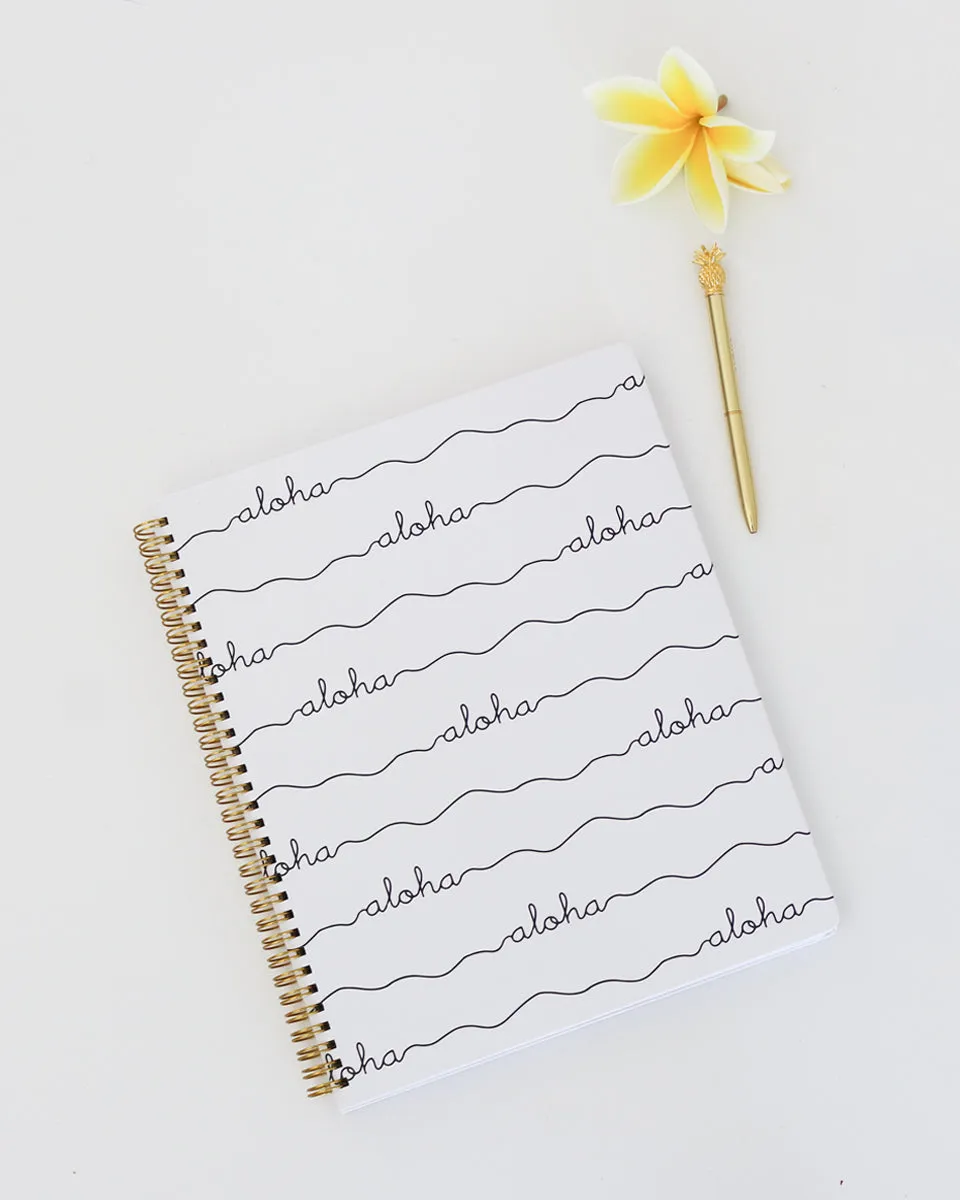 aloha a
aloha
loha aloha
aloha a
aloha
loha aloha
aloha a
aloha
loha aloha